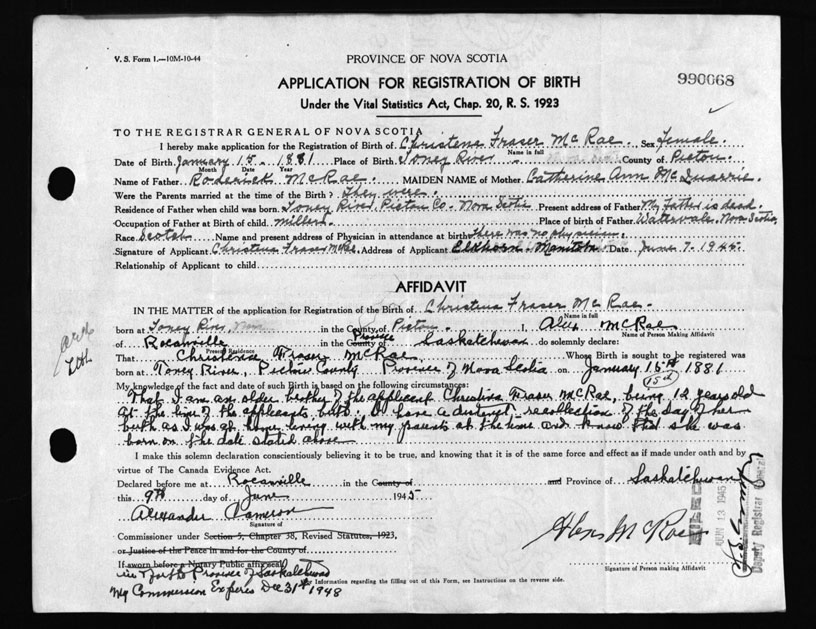 V. S. Form 1.—10M-10-44
PROVINCE OF NOVA SCOTIA
990068
APPLICATION FOR REGISTRATION OF BIRTH
Under the Vital Statistics Act, Chap. 20, R. S. 1923
TO THE REGISTRAR GENERAL OF NOVA SCOTIA
I hereby make application for the Registration of Birth of Christene Fraser McRae. Sex Female.
Name in full
Date of Birth January 15. 1881 Place of Birth Toney River County of Pictou.
Month Day Year
Name of Father Roderick McRae. MAIDEN NAME of Mother Catherine Ann McQuarrie
Were the Parents married at the time of the Birth? They were.
Residence of Father when child was born Toney River, Pictou Co. Nova Scotia Present address of Father My Father is dead.
Occupation of Father at Birth of child. millard Place of birth of Father Watervale, Nova Scotia
Race Scotch Name and present address of Physician in attendance at birth there was no physician.
Signature of Applicant Christena Fraser McRae Address of Applicant Elkhorn Manitoba Date June 7. 1945.
Relationship of Applicant to child
AFFIDAVIT
IN THE MATTER of the application for Registration of the Birth of Christena Fraser McRae.
Name in full
born at Toney River, in the County of Pictou. I, Alex McRae
Name of Person Making Affidavit
of Rocanville in the County of Province Saskatchewan do solemnly declare:
Present Residence
That Christena Fraser McRae, Whose Birth is sought to be registered was
born at Toney River, Pictou County Province of Nova Scotia on January 15th 1881
15th
My knowledge of the fact and date of such Birth is based on the following circumstances:
That I am an older brother of the applicant Christina Fraser McRae, being 12 years old
at the time of the applicants birth. I have a distinct recollection of the day of her
birth as I was at home living with my parents at the time and know that she was
born on the date stated above
I make this solemn declaration conscientiously believing it to be true, and knowing that it is of the same force and effect as if made under oath and by
virtue of The Canada Evidence Act.
Declared before me at Rocanville in the County of and Province of Saskatchewan
this 9th day of June 1945
Alexander Cameron
Signature of
Commissioner under Section 5, Chapter 38, Revised Statutes, 1923,
or Justice of the Peace in and for the County of
If sworn before a Notary Public affix seal
in & for the Province of Saskatchewan
My Commission Expires Dec 31st 1948
For Information regarding the filling out of this Form, see Instructions on the reverse side.
Alex McRae
Signature of Person making Affidavit
JUN 13 1945
Deputy Registrar